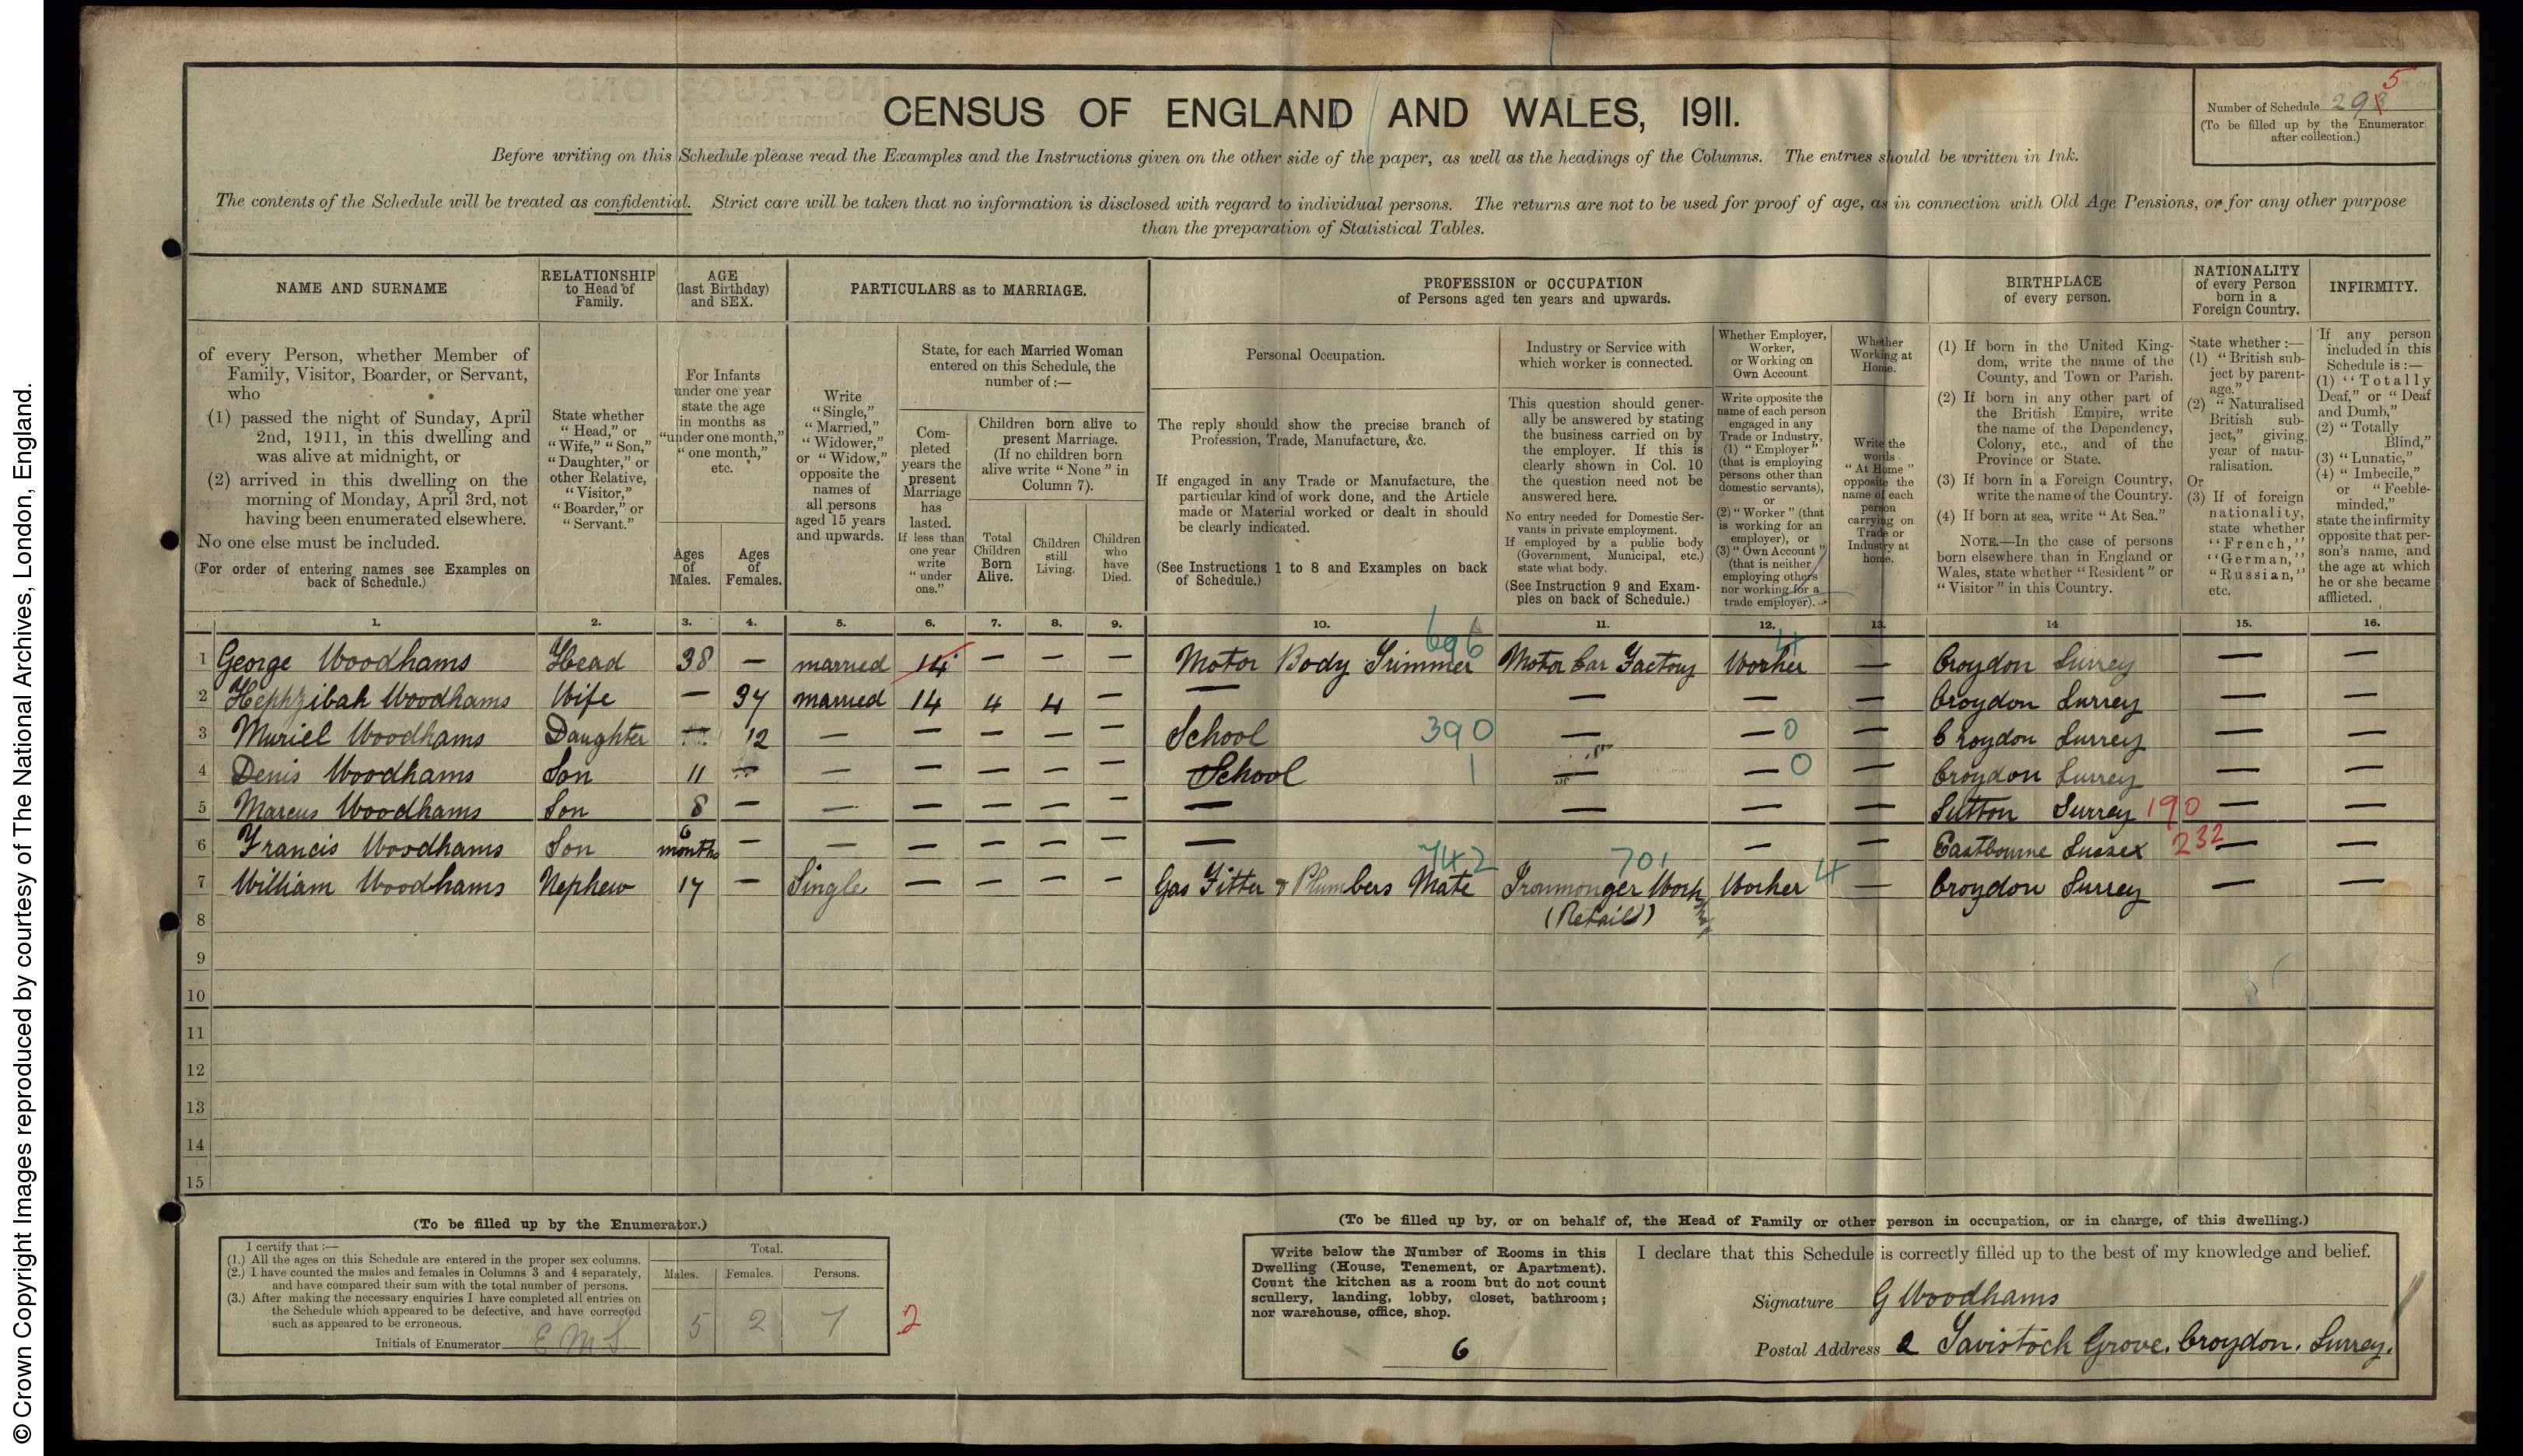 © Crown Copyright Images reproduced by courtesy of The National Archives, London, England.
CENSUS OF ENGLAND AND WALES, 1911.
Number of Schedule 295
(To be filled up by the Enumerator after collection.)
Before writing on this Schedule please read the Examples and the Instructions given on the other side of the paper, as well as the headings of the Columns. The entries should be written in Ink.
The contents of the Schedule will be treated as confidential. Strict care will be taken that no information is disclosed with regard to individual persons. The returns are not to be used for proof of age, as in connection with Old Age Pensions, or for any other purpose
than the preparation of Statistical Tables.
NAME AND SURNAME
RELATIONSHIP
to Head of
Family.
AGE
(last Birthday)
and SEX.
PARTICULARS as to MARRIAGE.
PROFESSION or OCCUPATION
of Persons aged ten years and upwards.
BIRTHPLACE
of every person.
NATIONALITY
of every Person
born in a
Foreign Country.
INFIRMITY.
of every Person, whether Member of
Family, Visitor, Boarder, or Servant,
who
(1) passed the night of Sunday, April
2nd, 1911, in this dwelling and
was alive at midnight, or
(2) arrived in this dwelling on the
morning of Monday, April 3rd, not
having been enumerated elsewhere.
No one else must be included.
(For order of entering names see Examples on
back of Schedule.)
State whether
"Head," or
"Wife," "Son,"
"Daughter," or
other Relative,
"Visitor,"
"Boarder," or
"Servant."
For Infants
under one year
state the age
in months as
"under one month,"
"one month,"
etc.
Ages
of
Males.
Ages
of
Females.
Write
"Single,"
"Married,"
"Widower,"
or "Widow,"
opposite the
names of
all persons
aged 15 years
and upwards.
State, for each Married Woman
entered on this Schedule, the
number of :—
Com-
pleted
years the
present
Marriage
has
lasted.
If less than
one year
write
"under
one."
Children born alive to
present Marriage.
(If no children born
alive write "None" in
Column 7).
Total
Children
Born
Alive.
Children
still
Living.
Children
who
have
Died.
Personal Occupation.
The reply should show the precise branch of
Profession, Trade, Manufacture, &c.
If engaged in any Trade or Manufacture, the
particular kind of work done, and the Article
made or Material worked or dealt in should
be clearly indicated.
(See Instructions 1 to 8 and Examples on back
of Schedule.)
Industry or Service with
which worker is connected.
This question should gener-
ally be answered by stating
the business carried on by
the employer. If this is
clearly shown in Col. 10
the question need not be
answered here.
No entry needed for Domestic Ser-
vants in private employment.
If employed by a public body
(Government, Municipal, etc.)
state what body.
(See Instruction 9 and Exam-
ples on back of Schedule.)
Whether Employer,
Worker,
or Working on
Own Account
Write opposite the
name of each person
engaged in any
Trade or Industry,
(1) "Employer"
(that is employing
persons other than
domestic servants),
or
(2) "Worker" (that
is working for an
employer), or
(3) "Own Account"
(that is neither
employing others
nor working for a
trade employer).
Whether
Working at
Home.
Write the
words
"At Home"
opposite the
name of each
person
carrying on
Trade or
Industry at
home.
(1) If born in the United King-
dom, write the name of the
County, and Town or Parish.
(2) If born in any other part of
the British Empire, write
the name of the Dependency,
Colony, etc., and of the
Province or State.
(3) If born in a Foreign Country,
write the name of the Country.
(4) If born at sea, write "At Sea."
NOTE.—In the case of persons
born elsewhere than in England or
Wales, state whether "Resident" or
"Visitor" in this Country.
State whether :—
(1) "British sub-
ject by parent-
age."
(2) "Naturalised
British sub-
ject," giving
year of natu-
ralisation.
Or
(3) If of foreign
nationality,
state whether
"French,"
"German,"
"Russian,"
etc.
If any person
included in this
Schedule is :—
(1) "Totally
Deaf," or "Deaf
and Dumb,"
(2) "Totally
Blind,"
(3) "Lunatic,"
(4) "Imbecile,"
or "Feeble-
minded,"
state the infirmity
opposite that per-
son's name, and
the age at which
he or she became
afflicted.
1. 2. 3. 4. 5. 6. 7. 8. 9. 10. 11. 12. 13. 14 15. 16.
1 George Woodhams Head 38 — married 14 — — — Motor Body Trimmer 696 Motor Car Factory Worker 4 — Croydon Surrey — —
2 Hephzibah Woodhams Wife — 37 married 14 4 4 — — — — — Croydon Surrey — —
3 Muriel Woodhams Daughter — 12 — — — — — School 390 — — 0 — Croydon Surrey — —
4 Denis Woodhams Son 11 — — — — — — School 1 — — 0 — Croydon Surrey — —
5 Marcus Woodhams Son 8 — — — — — — — — — — Sutton Surrey 190 — —
6 Francis Woodhams Son 6 months — — — — — — — — — Eastbourne Sussex 232 — —
7 William Woodhams Nephew 17 — Single — — — — Gas Fitter & Plumbers Mate 742 Ironmonger Work 701 Worker 4 — Croydon Surrey — —
(Retail)
8
9
10
11
12
13
14
15
(To be filled up by the Enumerator.)
I certify that :—
(1.) All the ages on this Schedule are entered in the proper sex columns.
(2.) I have counted the males and females in Columns 3 and 4 separately,
and have compared their sum with the total number of persons.
(3.) After making the necessary enquiries I have completed all entries on
the Schedule which appeared to be defective, and have corrected
such as appeared to be erroneous.
Initials of Enumerator E M S.
Total.
Males. Females. Persons.
5 2 7 2
(To be filled up by, or on behalf of, the Head of Family or other person in occupation, or in charge, of this dwelling.)
Write below the Number of Rooms in this
Dwelling (House, Tenement, or Apartment).
Count the kitchen as a room but do not count
scullery, landing, lobby, closet, bathroom;
nor warehouse, office, shop.
6
I declare that this Schedule is correctly filled up to the best of my knowledge and belief.
Signature G Woodhams
Postal Address 2 Tavistock Grove, Croydon, Surrey.